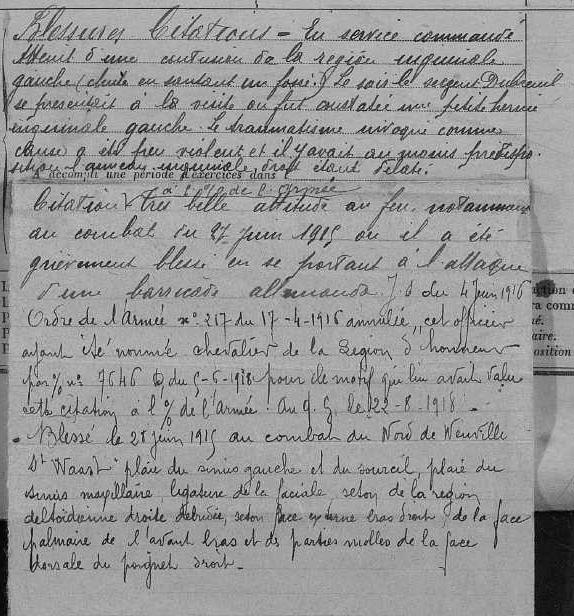 Blessures Citations = En service commandé
atteint d'une contusion de la région inguinale
gauche (chute en sautant un fossé.) Le soir le sergent Dubreuil
se présentait à la visite où fut constatée une petite hernie
inguinale gauche. Le traumatisme invoqué comme
cause a été peu violent et il y avait au moins prédispo-
sition l'anneau inguinale droit étant dilaté.
accompli une période d'exercices dans
à l'% de l'Armée
Citation très belle attitude au feu, notamment
au combat du 27 Juin 1915 où il a été
grièvement blessé en se portant à l'attaque
d'une barricade allemande J.O du 4 Juin 1916
Ordre de l'Armée n° 217 du 17-4-1916 annulée, cet officier
ayant été nommé chevalier de la Légion d'honneur
par % n° 7646 D du 5-6-1918 pour le motif qui lui avait valu
cette citation à l'% de l'Armée. Au q.g. le 22-8-1918.
Blessé le 28 juin 1915 au combat du Nord de Neuville
St Waast " plaie du sinus gauche et du sourcil, plaie du
sinus maxillaire, ligature de la faciale, séton de la région
deltoïdienne droite débridée, séton face externe bras droit, de la face
palmaire de l'avant bras et des parties molles de la face
dorsale du poignet droit.